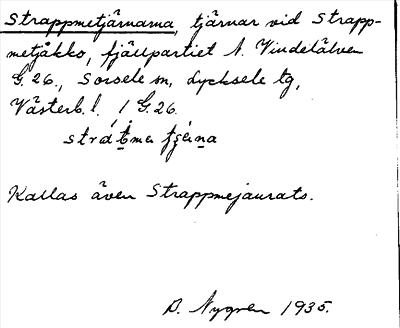 Strappmetjärnarna, tjärnar vid Strapp-
metjåkko, fjällpartiet N. Vindelälven
G.26., Sorsele sn, Lycksele tg,
Västerb. l. / G.26.
Kallas även Strappmejaurats.
D. Nygren 1935.